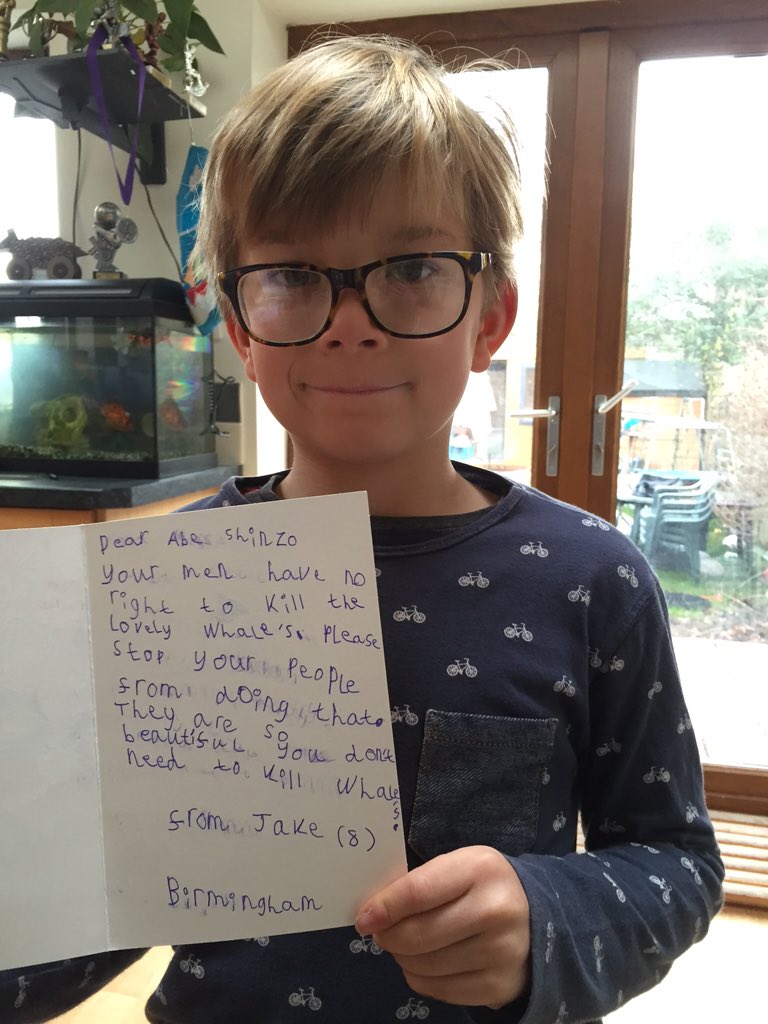 Dear Abe Shinzo
Your men have no
right to kill the
Lovely whale's. Please
stop your People
from doing that.
They are so
beautiful you dont
need to kill whale
's.
from Jake (8)
Birmingham